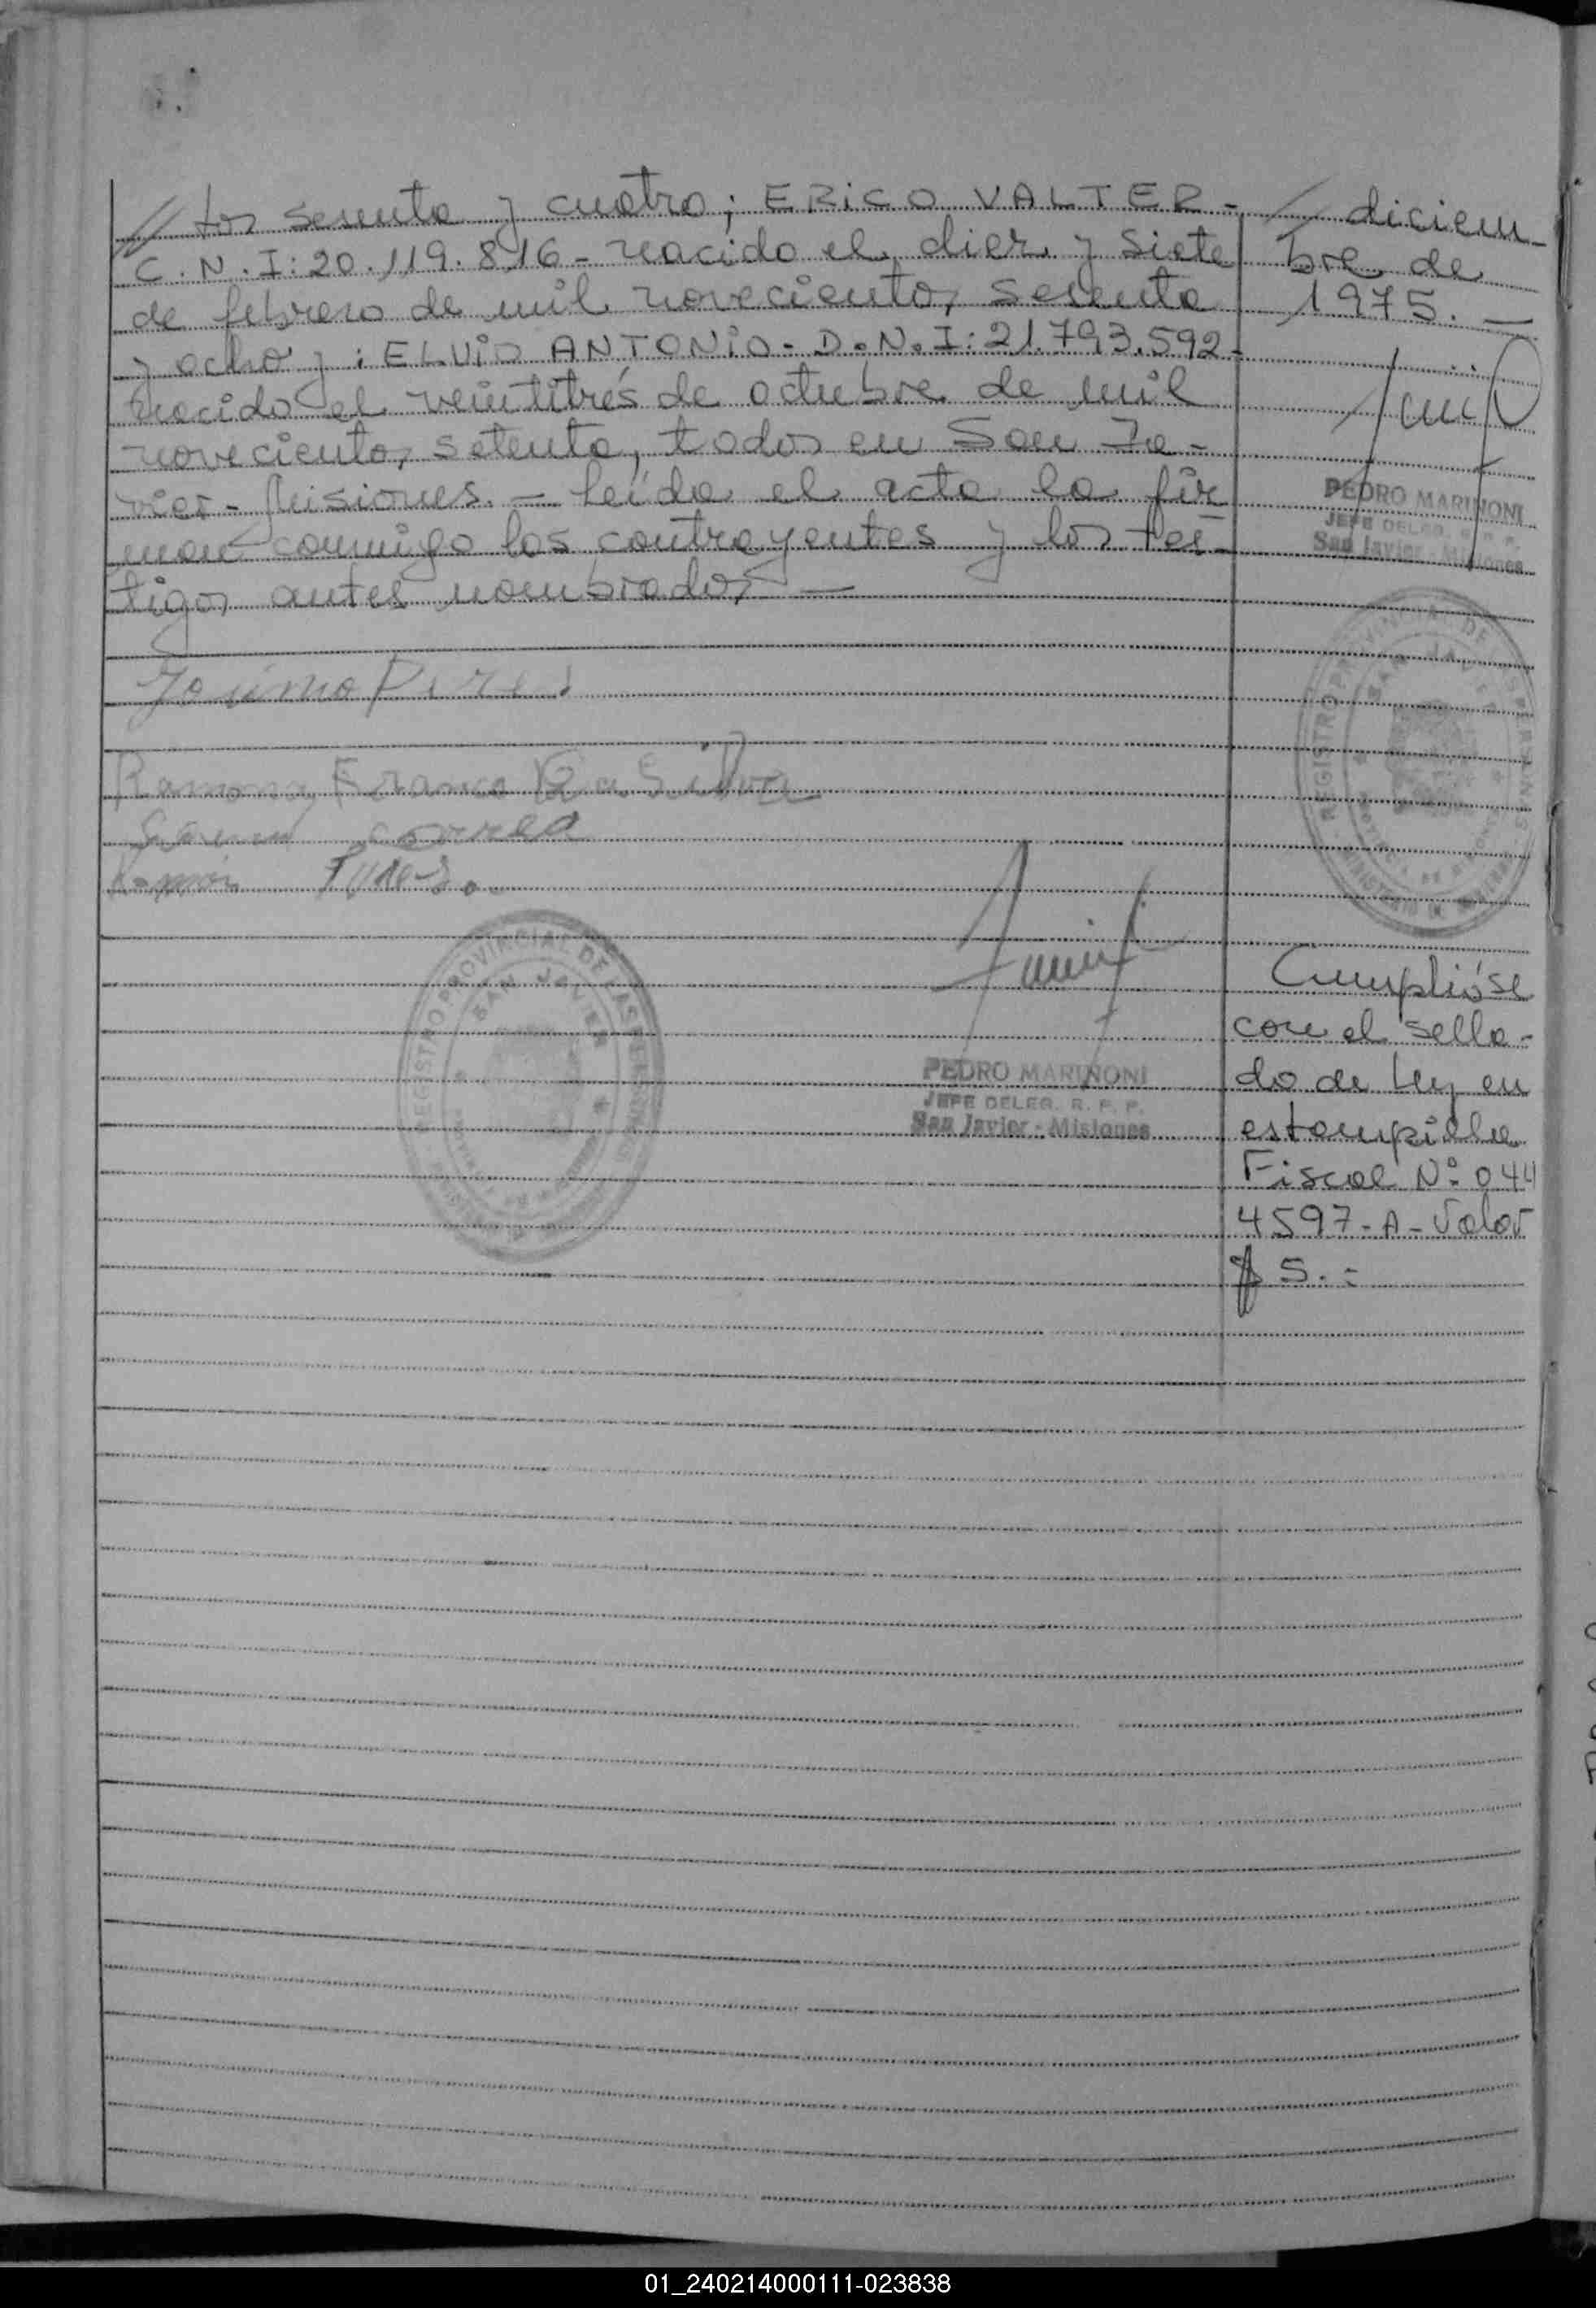 // tos sesenta y cuatro; ERICO VALTER -
C.N.I: 20.119.816 - nacido el diez y siete
de febrero de mil novecientos sesenta
y ocho y; ELVIO ANTONIO - D.N.I: 21.793.592 -
nacido el veintitrés de octubre de mil
novecientos setenta, todos en San Ja-
vier - Misiones. - Leída el acta la fir
man conmigo los contrayentes y los tes-
tigos antes nombrados -
Josimo Pires
Ramona Franco Da Silva
correa
Ramón Pires.
REGISTRO PROVINCIAL DE LAS PERSONAS
SAN JAVIER
PEDRO MARINONI
JEFE DELEG. R. P. P.
San Javier - Misiones
/ diciem-
bre de
1975. -
PEDRO MARINONI
JEFE DELEG. R. P. P.
San Javier - Misiones
REGISTRO PROVINCIAL DE LAS PERSONAS
SAN JAVIER
Cumplióse
con el sella-
do de Ley en
estampilla
Fiscal Nº 044
4597 - A - Valor
$ 5. =
01_240214000111-023838